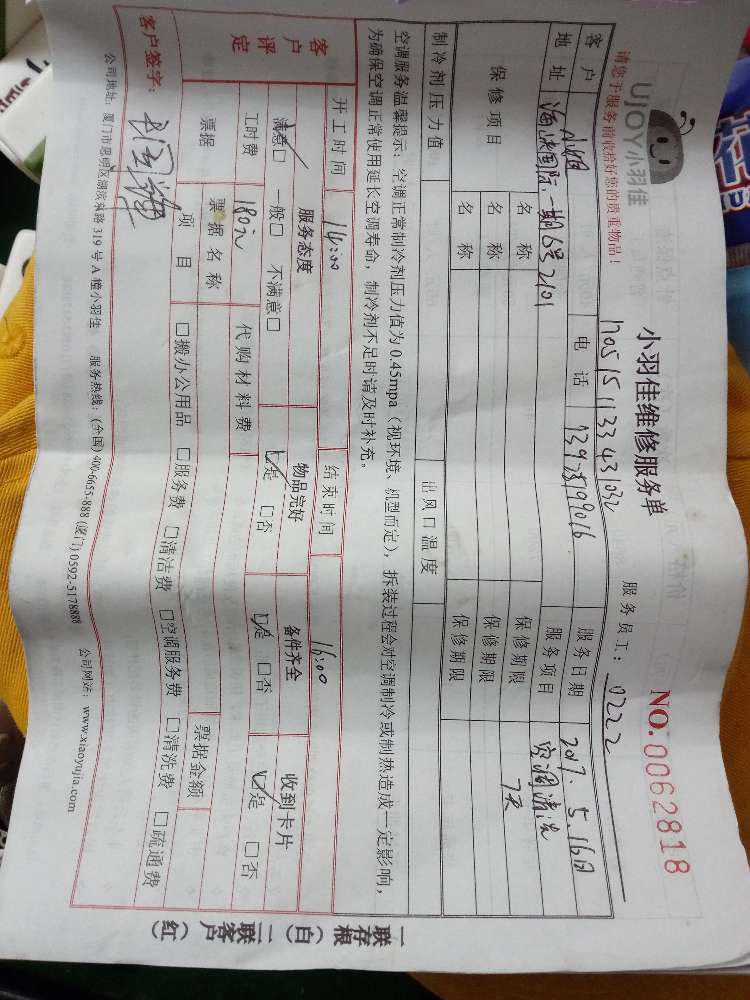 UJOY小羽佳
小羽佳维修服务单
NO.0062818
请您于服务前收拾好您的贵重物品!
1705151133431032
服务员工: 0222
客户 小姐 电话 13925799016 服务日期 2017.5.16日
地址 海沧国际一期6号2101 服务项目 空调清洗
保修项目 名称 保修期限 7天
名称 保修期限
名称 保修期限
制冷剂压力值 出风口温度
空调服务温馨提示:空调正常制冷剂压力值为0.45mpa(视环境、机型而定),拆装过程会对空调制冷或制热造成一定影响,
为确保空调正常使用延长空调寿命,制冷剂不足时请及时补充。
开工时间 14:00 结束时间 16:00
客户评定 服务态度 物品完好 备件齐全 收到卡片
满意□ 一般□ 不满意□ □是 □否 □是 □否 □是 □否
工时费 180元 代购材料费
票据 票据名称 票据金额
项目 □搬办公用品 □服务费 □清洁费 □空调服务费 □清洗费 □疏通费
客户签字:
公司地址:厦门市思明区湖滨东路319号A幢小羽佳 服务热线:(全国)400-6655-888(厦门)0592-5178888 公司网站:www.xiaoyujia.com
一联存根(白)二联客户(红)